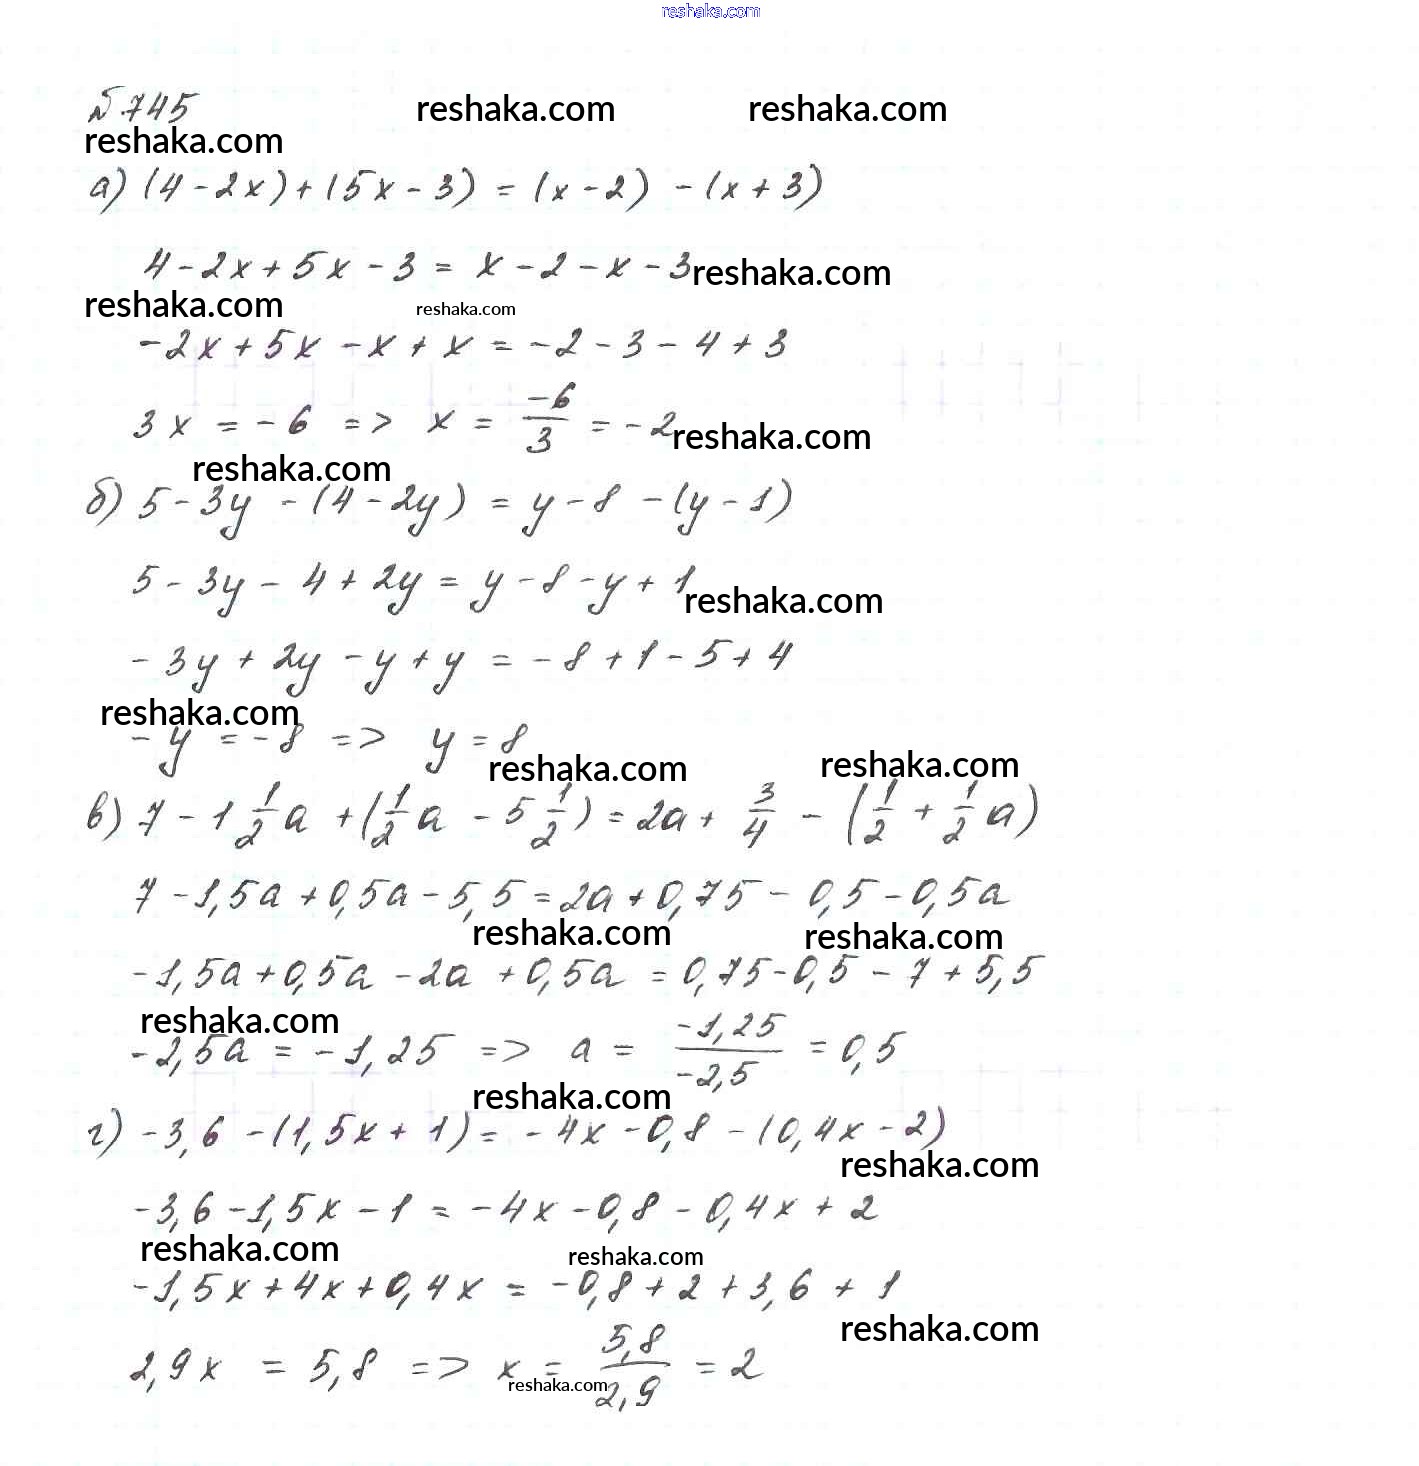 reshaka.com
№745 reshaka.com reshaka.com
reshaka.com
а) (4-2x)+(5x-3) = (x-2) -(x+3)
4-2x+5x-3 = x-2-x-3 reshaka.com
reshaka.com reshaka.com
-2x+5x-x+x = -2-3-4+3
3x = -6 => x = -6/3 = -2 reshaka.com
reshaka.com
б) 5-3y -(4-2y) = y-8 -(y-1)
5-3y-4+2y = y-8-y+1 reshaka.com
-3y+2y-y+y = -8+1-5+4
reshaka.com
-y = -8 => y = 8
reshaka.com reshaka.com
в) 7-1 1/2 a +(1/2 a - 5 1/2) = 2a + 3/4 - (1/2 + 1/2 a)
7-1,5a+0,5a-5,5 = 2a+0,75-0,5-0,5a
reshaka.com reshaka.com
-1,5a+0,5a-2a+0,5a = 0,75-0,5-7+5,5
reshaka.com
-2,5a = -1,25 => a = -1,25/-2,5 = 0,5
reshaka.com
г) -3,6 -(1,5x+1) = -4x-0,8-(0,4x-2)
reshaka.com
-3,6-1,5x-1 = -4x-0,8-0,4x+2
reshaka.com reshaka.com
-1,5x+4x+0,4x = -0,8+2+3,6+1
reshaka.com
2,9x = 5,8 => x = 5,8/2,9 = 2
reshaka.com